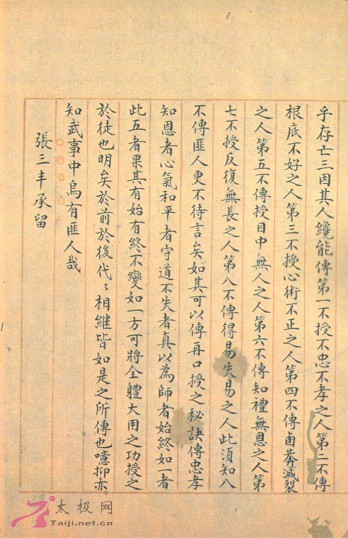 乎存亡三因其人纔能傳第一不授不忠不孝之人第二不傳
根底不好之人第三不授心術不正之人第四不傳鹵莽滅裂
之人第五不傳授目中無人之人第六不傳知禮無恩之人第
七不授反復無長之人第八不傳得易失易之人此須知八
不傳匪人更不待言矣如其可以傳再口授之秘訣傳忠孝
知恩者心氣和平者守道不失者真以為師者始終如一者
此五者果其有始有終不變如一方可將全體大用之功授之
於徒也明矣於前於後代代相繼皆如是之所傳也噫抑亦
知武事中烏有匪人哉
張三丰承留
太极网
Taiji.net.cn